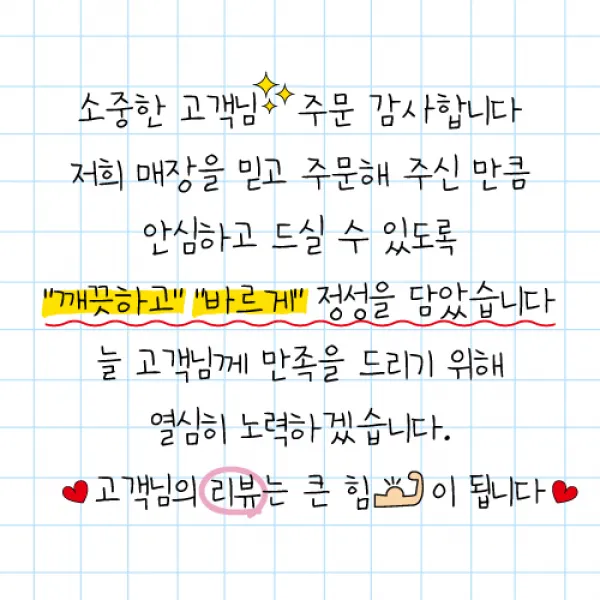 소중한 고객님 주문 감사합니다
저희 매장을 믿고 주문해 주신 만큼
안심하고 드실 수 있도록
"깨끗하고" "바르게" 정성을 담았습니다
늘 고객님께 만족을 드리기 위해
열심히 노력하겠습니다.
고객님의 리뷰는 큰 힘이 됩니다